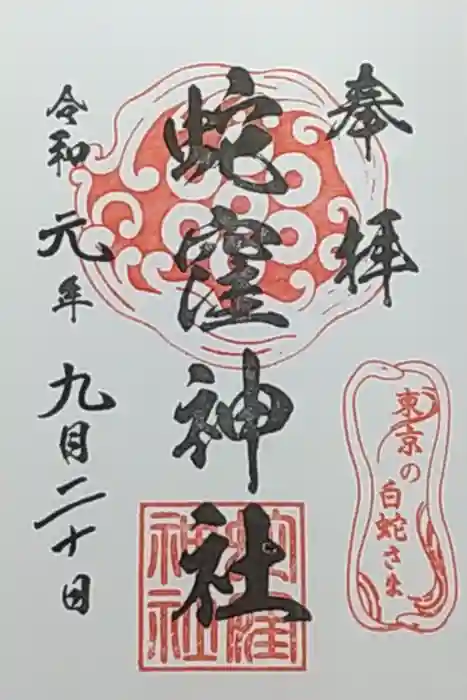 奉拝
蛇窪神社
令和元年九月二十日
東京の
白蛇さま
蛇窪
神社